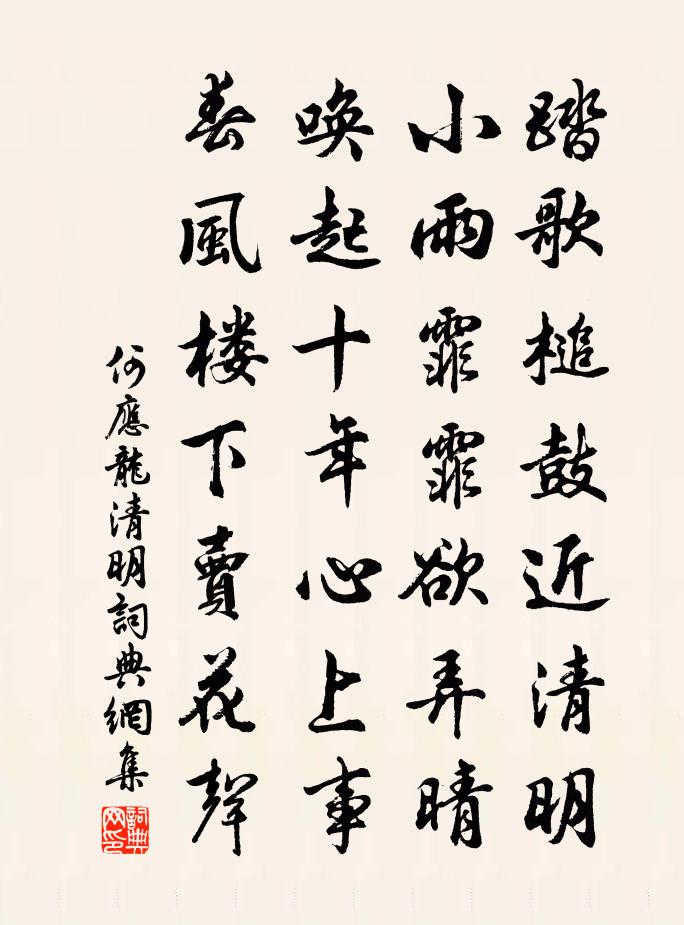 踏歌槌鼓近清明
小雨霏霏欲弄晴
喚起十年心上事
春風楼下賣花聲
何應龍清明詞典網集
詞典网印